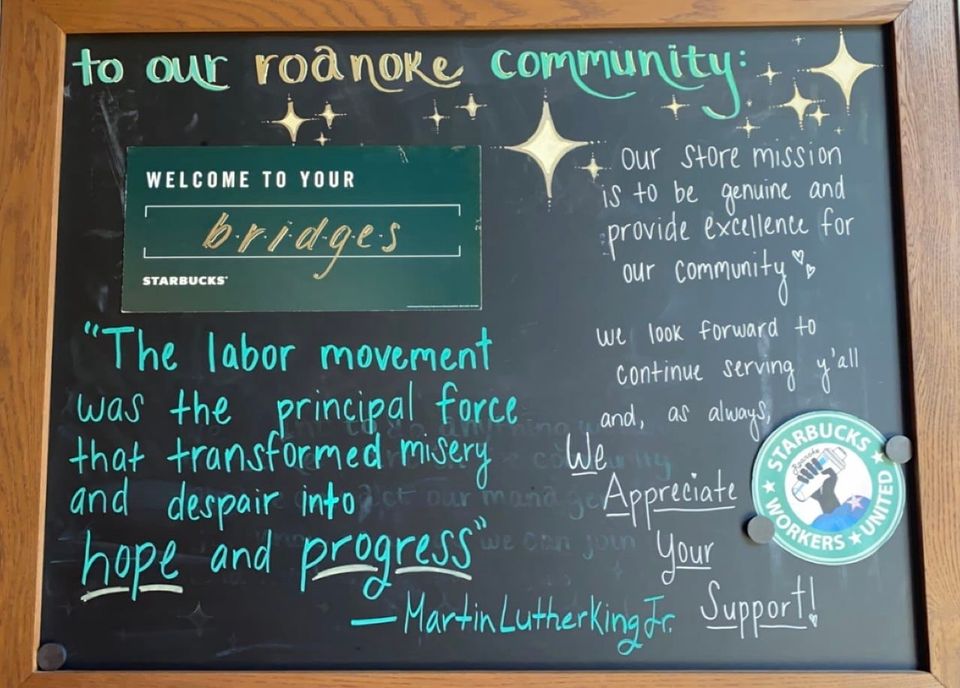 to our roanoke community:
WELCOME TO YOUR
bridges
STARBUCKS
"The labor movement
was the principal force
that transformed misery
and despair into
hope and progress"
— Martin Luther King Jr.
our store mission
is to be genuine and
provide excellence for
our community
we look forward to
continue serving y'all
and, as always,
We
Appreciate
Your
Support!
STARBUCKS
WORKERS UNITED